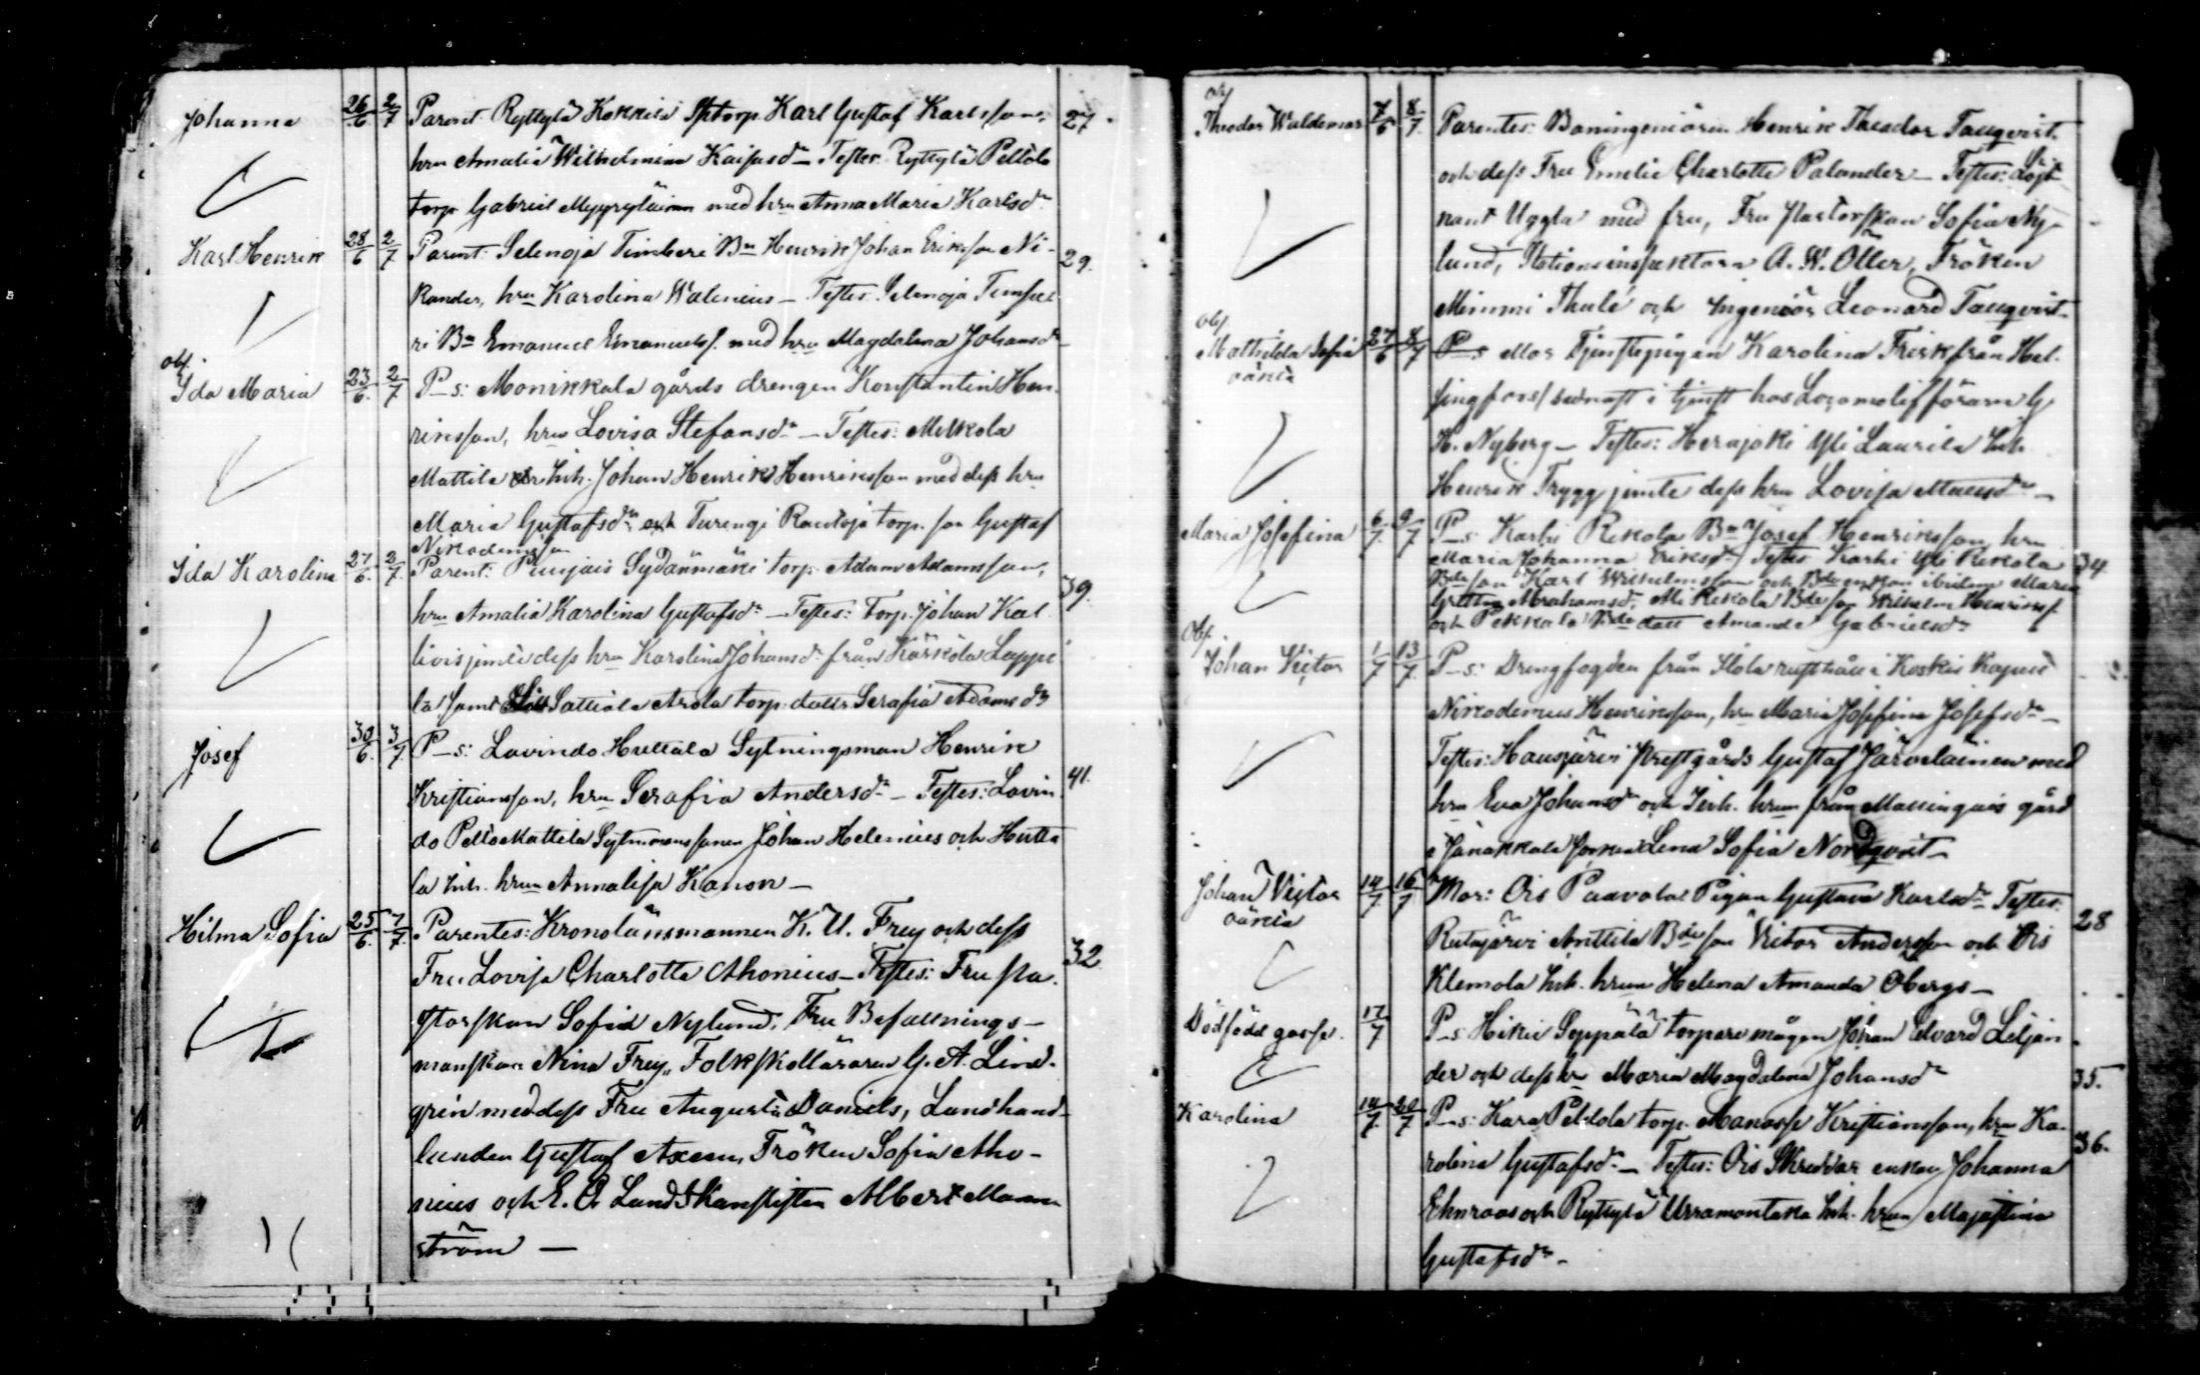 Johanna 26/6 2/7 Parent. Ryttylä Kokkila torp. Karl Gustaf Karlsson, 27.
hru Amalia Wilhelmina Kaisasdr – Testes: Ryttylä Peltola
torp Gabriel Myyryläinen med hru Anna Maria Karlsdr
Karl Henrik 28/6 2/7 Parent: Selenoja Timberi Bn Henrik Johan Eriksson Ni- 29.
kander, hru Karolina Walenius – Testes Selenoja
ri Bn Emanuel Emanuelss. med hru Magdalena Johansdr
obs.
Ida Maria 23/6. 2/7 P–s: Monikkala gårds drengen Konstantin Hen-
riksson, hru Lovisa Stefansdr – Testes: Mikkola
Mattila Inh. Johan Henrik Henriksson med dess hru
Maria Gustafsdr och Turengi Rautoja torp. son Gustaf
Nikodemsson
Ida Karolina 27/6. 2/7. Parent: Punjais Sydänmäki torp. Adam Adamsson, 39.
hru Amalia Karolina Gustafsdr – Testes: Torp. Johan Kal-
livis jemte dess hru Karolina Johansdr från Kärkölä Lappi
la samt Sattiala Arola torp. dottr Serafia Adamsdr
Josef 30/6. 3/7. P–s: Lavindo Huttala Sytningsman Henrik 41.
Kristiansson, hru Serafia Andersdr – Testes: Lavin
do Pelto Mattila Sytnmanssonen Johan Helenius och Hutta
la Inh. hrun Annalisa Kanon –
Hilma Sofia 25/6. 7/7. Parentes: Kronolänsmannen K. U. Frey och dess 32
Fru Lovisa Charlotta Ahonius – Testes: Fru Pa-
storskan Sofia Nylund, Fru Befallnings-
manskan Nina Frey, Folkskolläraren G. A. Lind-
grén med dess Fru Augusta Daniels, Landhand-
landen Gustaf Axén, Fröken Sofia Aho-
nius och E. O. Landskanslisten Albert Mann
ström –
Theodor Waldemar 7/6 8/7. Parentes: Baningeniören Henrik Theodor Tauqvist
och dess Fru Emelie Charlotte Palander – Testes: Löjt-
nant Uggla med fru, Fru Pastorskan Sofia Ny-
lund, Stationsinspektorn A. W. Öller, Fröken
Mimmi Thulé och Ingeniör Leonard Tauqvist
obs.
Mathilda Sofia 27/6 8/7 P–s Mor Tjenstepigan Karolina Frisk från Hel-
oäkta singfors/ sednast i tjenst hos Locomotifföraren G.
H. Nyberg – Testes: Herajoki Yli Laurila Inh.
Henrik Trygg jemte dess hru Lovisa Mattsdr –
Maria Josefina 6/7. 9/7 P–s Karhi Rekola Bn Josef Henriksson, hru
Maria Johanna Eriksdr Testes Karhi Yli Rekola 34
Bdeson Karl Wilhelmsson och Bdeenkan ibidem Maria
Abrahamsdr, Ali Rekola Bdeson Wilhelm Henrikss
och Pekkala Bde dott Amanda Gabrielsdr
Obs.
Johan Victor 1/7 13/7. P–s: Drengfogden från rusthåll i Koskis Kapell
Nikodemus Henriksson, hru Maria Josefina Josefsdr –
Testes: Hausjärvi Prestgårds Gustaf Järveläinen med
hru Eva Johansdr och Inh. hrun från Mallinkais gård
i Janakkala socken Lena Sofia Nordqvist –
Johan Victor 14/7. 16/7 Mor: Ois Paavola Pigan Gustava Karlsdr Testes: 28
oäkta Rutajärvi Anttila Bdeson Viktor Andersson och Ois
Klemola Inh. hrun Helena Amanda Obergs –
Dödfödd gosse. 17/7 P–s Hikiä Seppälä torpare mågen Johan Edvard Liljan
der och dess hru Maria Magdalena Johansdr 35.
Karolina 14/7. 20/7 P–s: Kara Peltola torp. Manasse Kristiansson, hru Ka- 36.
rolina Gustafsdr – Testes: Ois Skreddar enkan Johanna
Ehnroos och Ryttylä Urramontaka Inh. hrun Majastina
Gustafsdr –